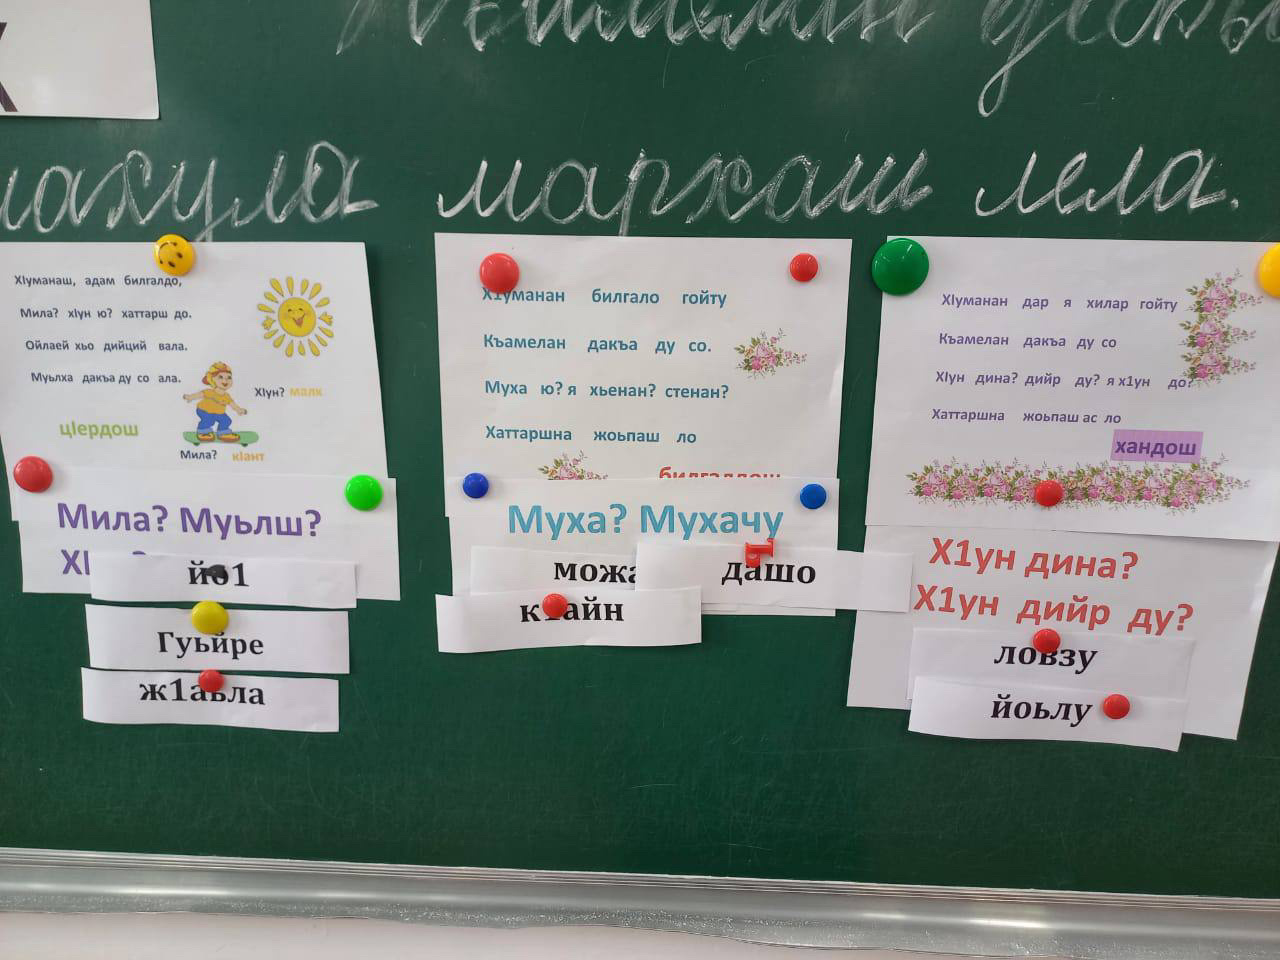 мархаш лела.
ХӀуманаш, адам билгалдо,
Мила? хӀун ю? хаттарш до.
Ойлаей хьо дийций вала.
Муьлха дакъа ду со ала.
ХӀун? малх
цӀердош
Мила? кӀант
Мила? Муьлш?
йо1
Гуьйре
ж1аьла
Х1уманан билгало гойту
Къамелан дакъа ду со.
Муха ю? я хьенан? стенан?
Хаттаршна жоьпаш ло
билгалдош
Муха? Мухачу
можа
дашо
к1айн
ХӀуманан дар я хилар гойту
Къамелан дакъа ду со
ХӀун дина? дийр ду? я х1ун до?
Хаттаршна жоьпаш ас ло
хандош
Х1ун дина?
Х1ун дийр ду?
ловзу
йоьлу